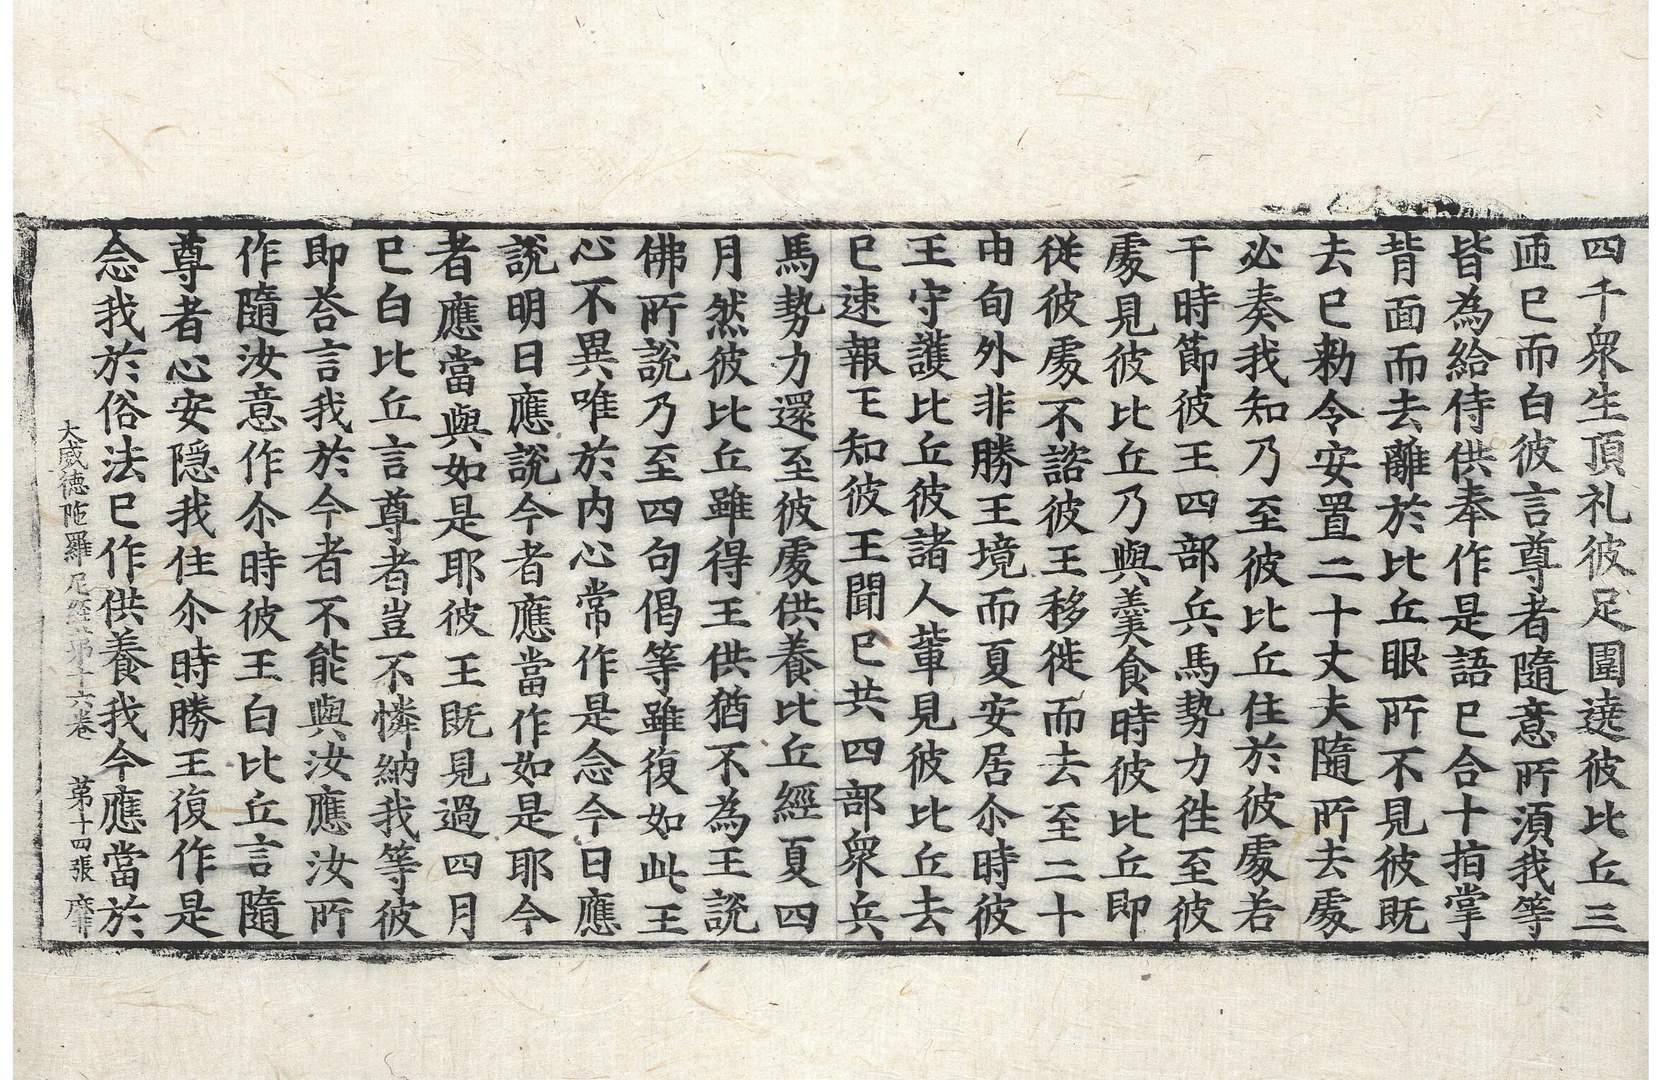 四千衆生頂礼彼足圍遶彼比丘三
匝巳而白彼言尊者隨意所湏我等
皆為給侍供奉作是語巳合十指掌
背面而去離於比丘眼所不見彼既
去巳勑令安置二十丈夫隨所去處
必奏我知乃至彼比丘住於彼處若
干時節彼王四部兵馬勢力徃至彼
處見彼比丘乃與羹食時彼比丘即
従彼處不諮彼王移徙而去至二十
由旬外非勝王境而夏安居尒時彼
王守護比丘彼諸人輩見彼比丘去
巳速報王知彼王聞巳共四部衆兵
馬勢力還至彼處供養比丘經夏四
月然彼比丘雖得王供猶不為王説
佛所説乃至四句偈等雖復如此王
心不異唯於内心常作是念今日應
説明日應説今者應當作如是耶今
者應當與如是耶彼王既見過四月
巳白比丘言尊者豈不憐納我等彼
即荅言我於今者不能與汝應汝所
作隨汝意作尒時彼王白比丘言隨
尊者心安隠我住尒時勝王復作是
念我於俗法巳作供養我今應當於
大威徳陁羅尼經第十六卷 第十四張 靡